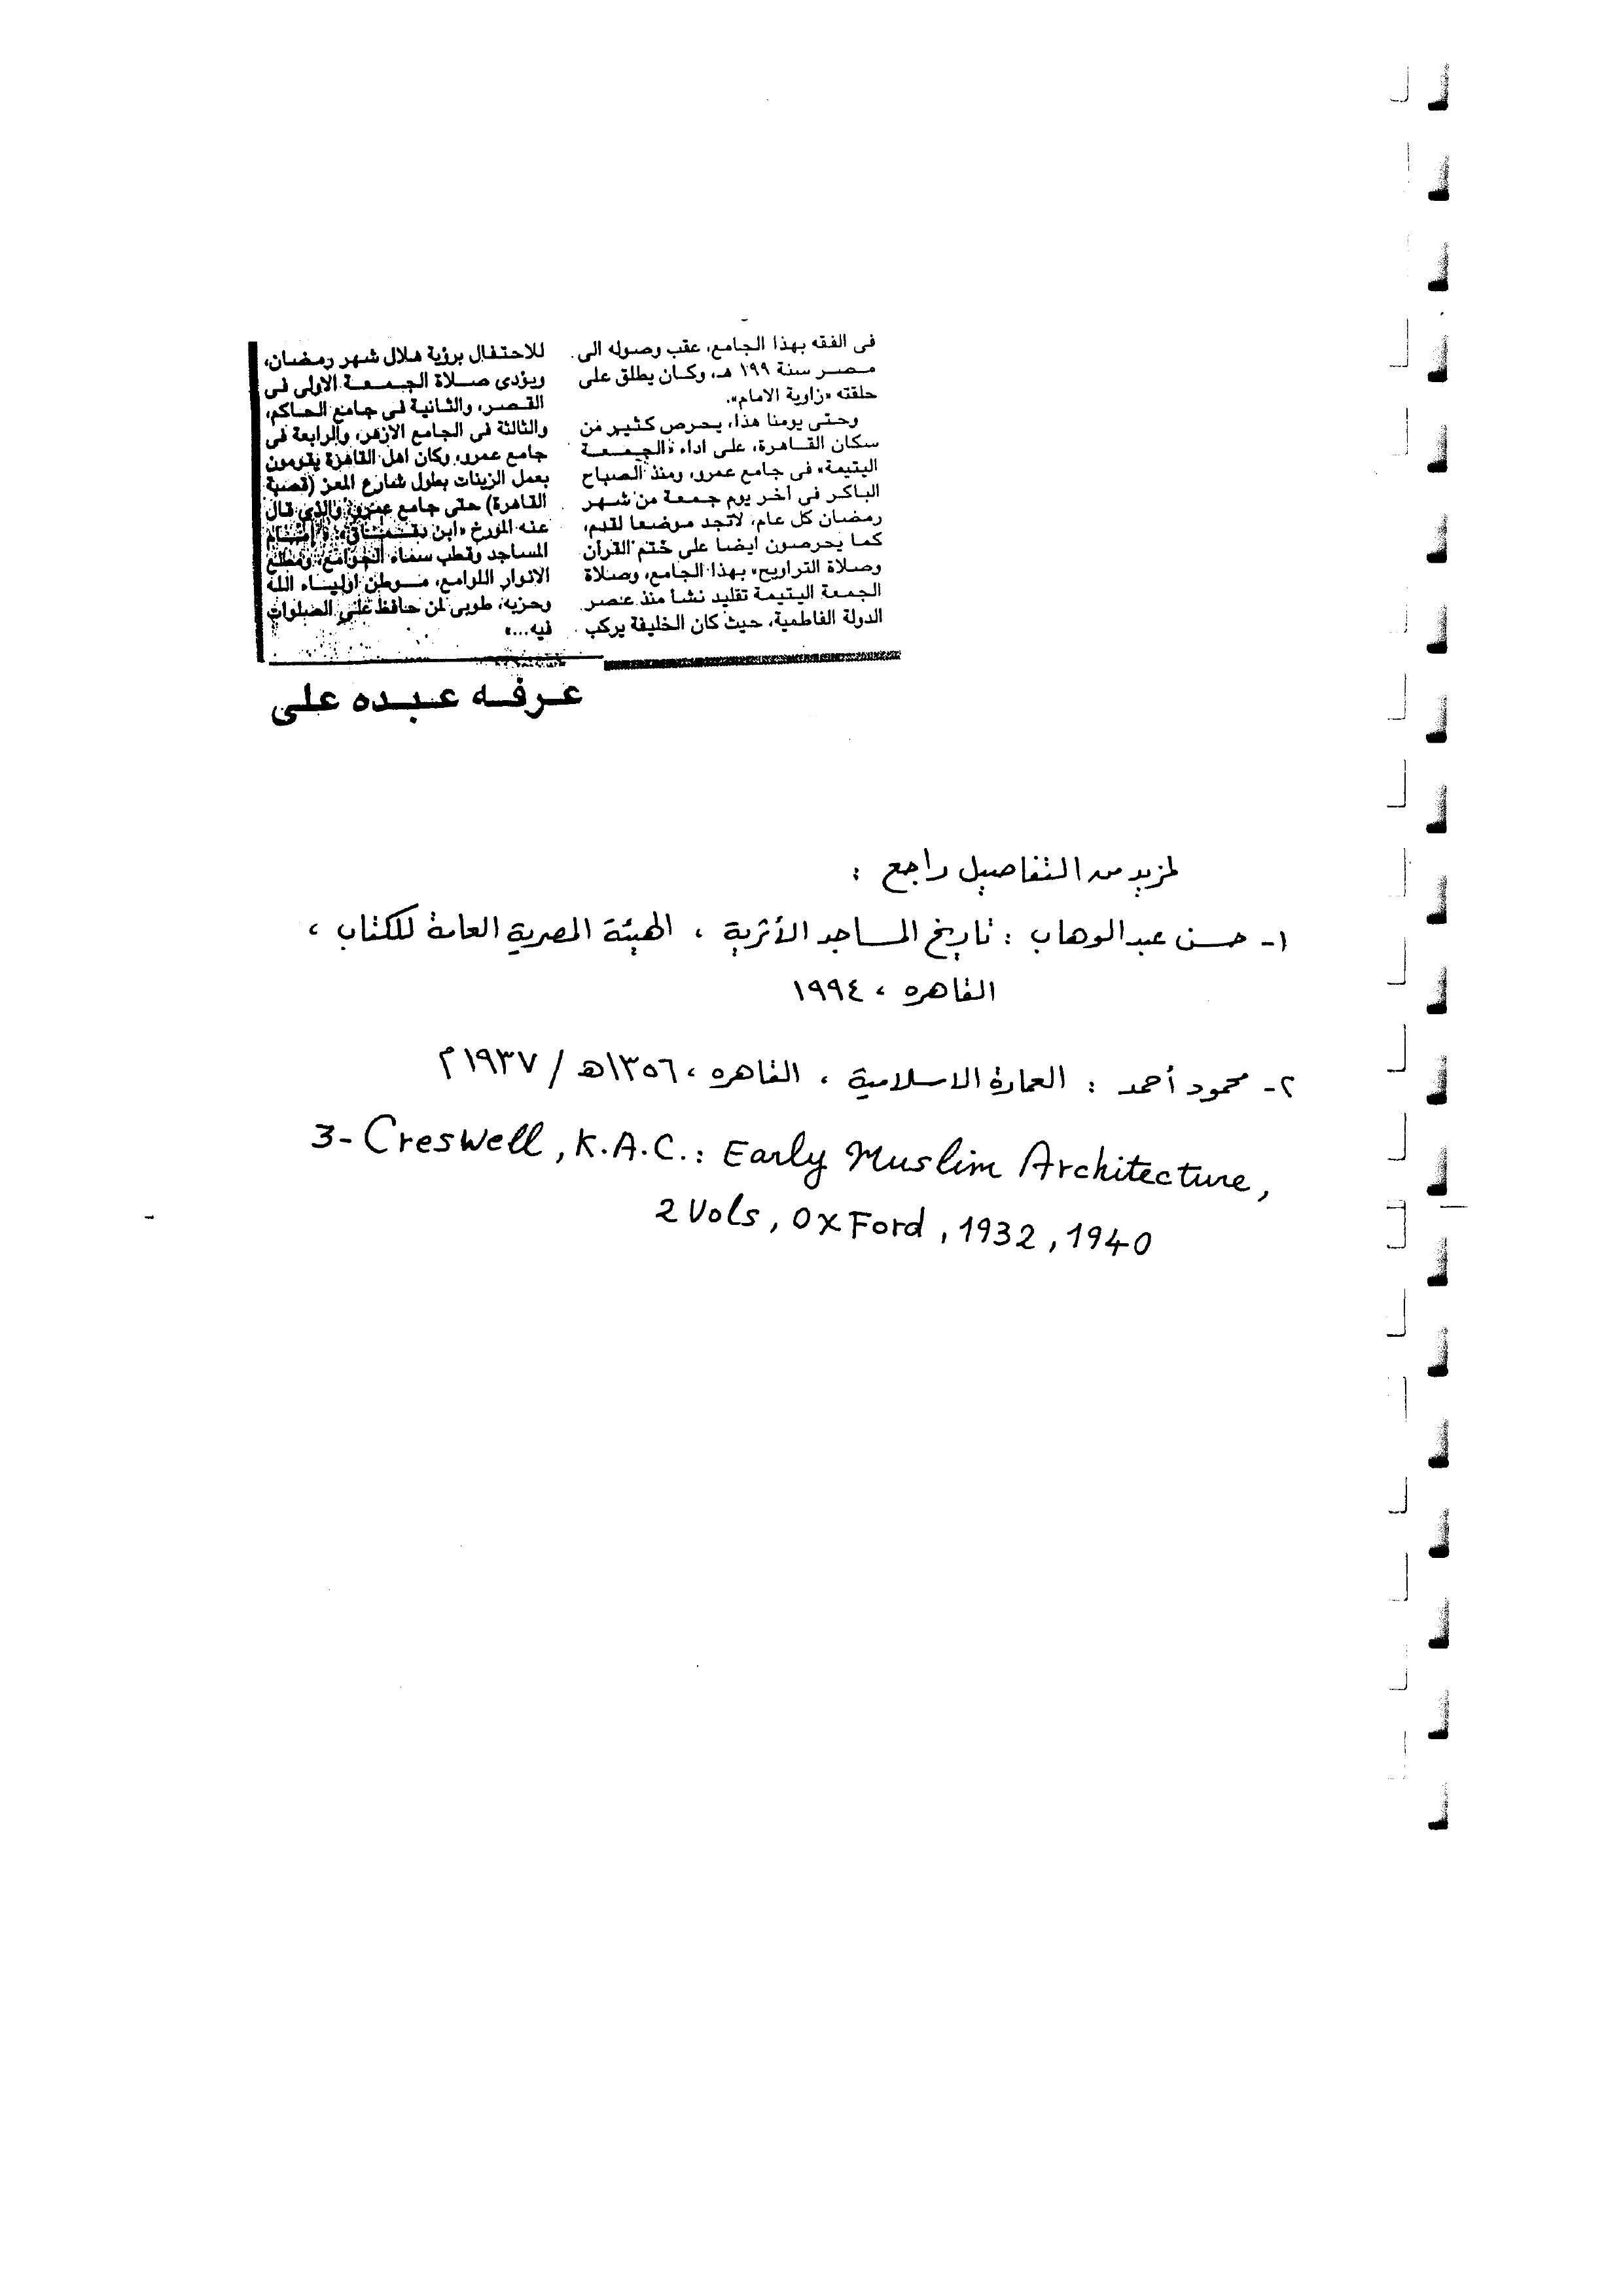 فى الفقه بهذا الجامع، عقب وصوله الى
مصر سنة ١٩٩ هـ، وكان يطلق على
حلقته «زاوية الامام».
وحتى يومنا هذا، يحرص كثير من
سكان القاهرة، على اداء «الجمعة
اليتيمة» فى جامع عمرو، ومنذ الصباح
الباكر فى آخر يوم جمعة من شهر
رمضان كل عام، لاتجد موضعا لقدم،
كما يحرصون ايضا على ختم القرآن
وصلاة التراويح، بهذا الجامع، وصلاة
الجمعة اليتيمة تقليد نشأ منذ عصر
الدولة الفاطمية، حيث كان الخليفة يركب
للاحتفال برؤية هلال شهر رمضان،
ويؤدى صلاة الجمعة الاولى فى
القصر، والثانية فى جامع الحاكم،
والثالثة فى الجامع الازهر، والرابعة فى
جامع عمرو، وكان اهل القاهرة يقومون
بعمل الزينات بطول شارع المعز (قصبة
القاهرة) حتى جامع عمرو، والذى قال
عنه المؤرخ «ابن دقماق»: «امام
المساجد وقطب سماء الجوامع، ومطلع
الانوار اللوامع، موطن اولياء الله
وحزبه، طوبى لمن حافظ على الصلوات
فيه...»
عرفه عبده على
لمزيد من التفاصيل راجع :
١- حسن عبدالوهاب : تاريخ المساجد الأثرية ، الهيئة المصرية العامة للكتاب ،
القاهره ، ١٩٩٤
٢- محمود أحمد : العمارة الاسلامية ، القاهره ، ١٣٥٦هـ / ١٩٣٧م
3- Creswell, K.A.C.: Early Muslim Architecture,
2 Vols, OxFord, 1932, 1940